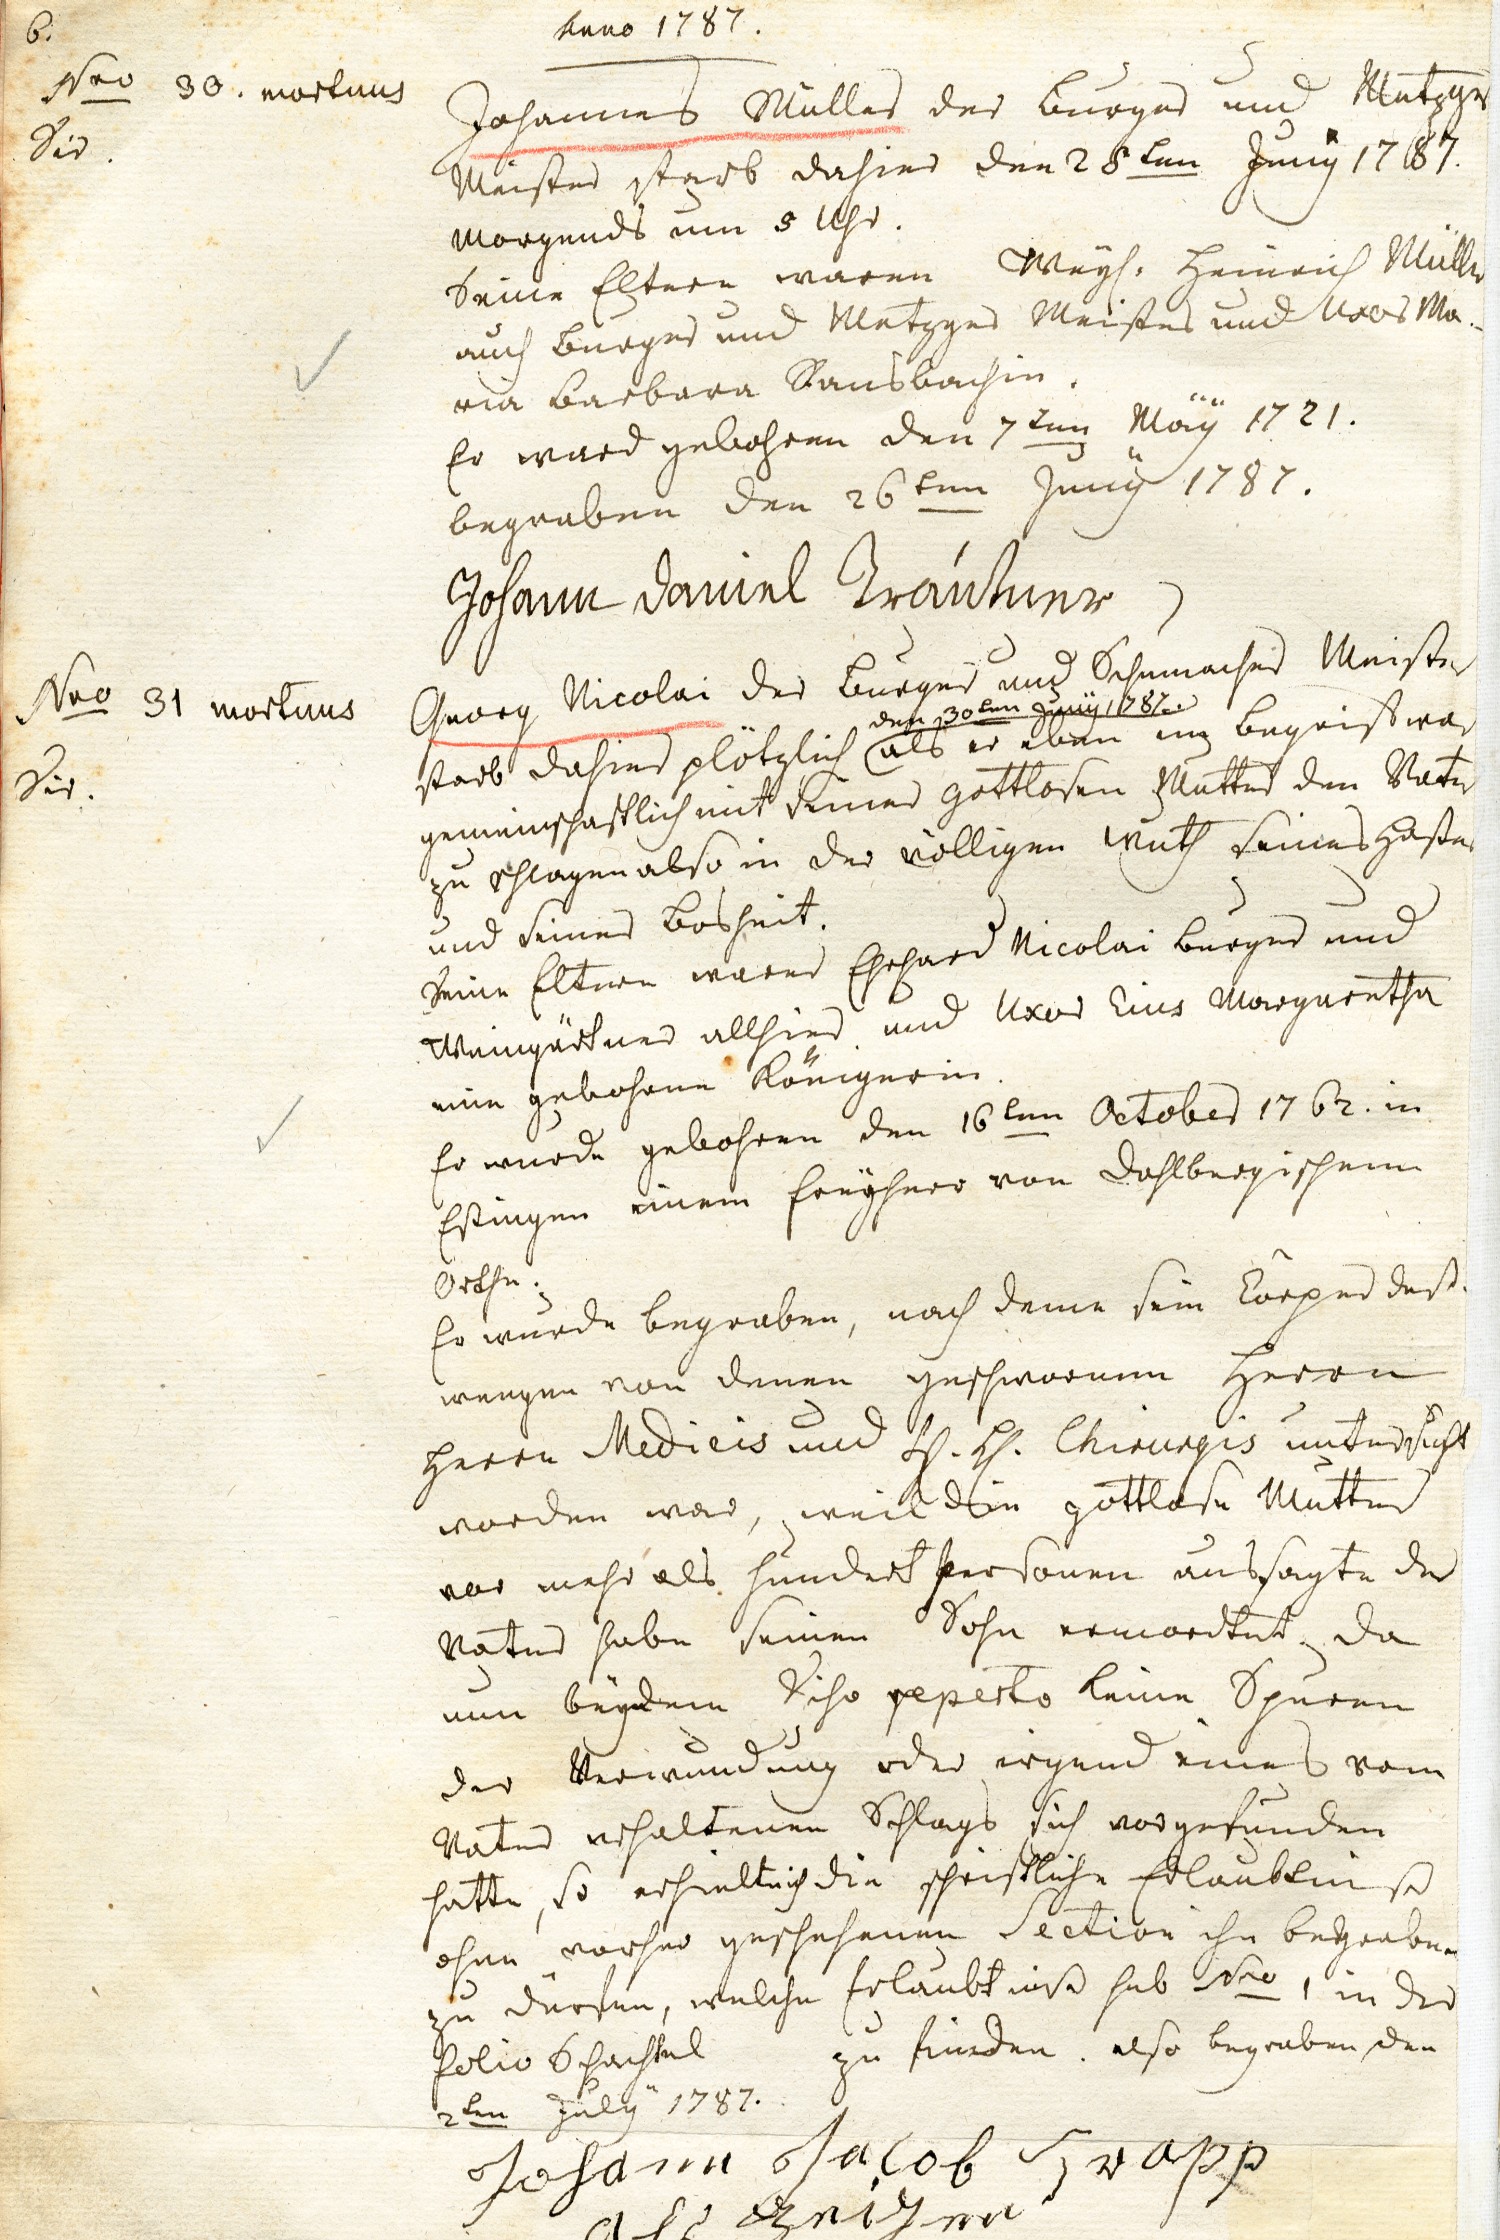 6.
Anno 1787.
Nro 30. mortuus
Johannes Müller der Burger und Metzger
Meister starb dahier den 25ten Junÿ 1787.
Morgends um 5 Uhr.
Seine Eltern waren Weyl. Heinrich Müller
auch Burger und Metzger Meister und Uxor Ma-
ria Barbara Sansbachin.
Er ward gebohren den 7ten Maÿ 1721.
begraben den 26ten Junÿ 1787.
Johann Daniel Träutner
Nro 31 mortuus
Georg Nicolai der Burger und Schumacher Meister
den 30ten Junÿ 1787.
starb dahier plötzlich als er eben im Begrif war
gemeinschaftlich mit seiner gottlosen Mutter den Vater
zu schlagen also in der völligen Wuth seines Haßes
und seiner Bosheit.
Seine Eltern waren Ehrhard Nicolai Burger und
Weingärtner allhier und Uxor Eius Margaretha
eine gebohrne Königerin.
Er wurde gebohren den 16ten October 1762. in
Eßingen einem Freyherr von Dahlbergischem
Orthe.
Er wurde begraben, nach deme sein Cörper deß-
wegen von denen geschwornen Herrn
Herrn Medicis und Chirurgis untersucht
worden war, weil die gottlose Mutter
vor mehr als hundert Personen aussagte der
Vater habe seinen Sohn ermordtet, da
nun beÿ dem Viso reperto keine Spuren
der Verwundung oder irgend eines vom
Vater erhaltenen Schlags sich vorgefunden
hatte, so erhielt ich die schriftliche Erlaubtniß
ohne vorher geschehenen Section ihn begraben
zu dürfen, welche Erlaubtniß sub Nro 1 in der
Folio Schachtel zu finden. also begraben den
2ten Julÿ 1787.
Johann Jacob Grapp
als zeigen